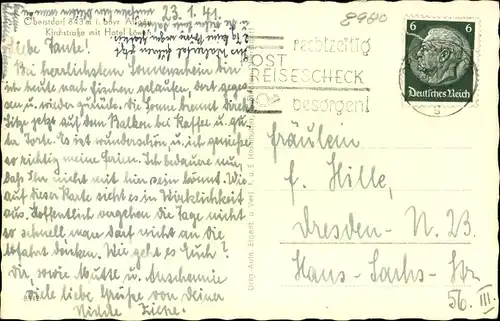 23.1.41
Oberstdorf 843 m i. bayr. Allgäu
Kirchstraße mit Hotel Löwen
Liebe Tante!
Bei herrlichstem Sonnenschein bin
ich heute nach Fischen gelaufen, dort geges-
sen u. wieder zurück. Die Sonne brennt direkt
Sitze jetzt auf dem Balkon bei Kaffee u. gu-
ter Torte. Es ist wunderschön u. ich geniesse
so richtig meine Ferien. Ich bedaure nur
dass Ihr nicht mit hier sein könnt. Wie
auf dieser Karte sieht es in Wirklichkeit
aus. Hoffentlich vergehen die Tage nicht
so schnell man darf nicht an die
Abfahrt denken. Wie geht es Euch?
Dir, sowie Mutti u. Annchemie
viele liebe Grüsse von Deiner
Nichte
8960
rechtzeitig
POST
REISESCHECK
besorgen!
6 6
Deutsches Reich
Fräulein
F. Hille,
Dresden - N. 23
Hans-Sachs-Str
56. III.